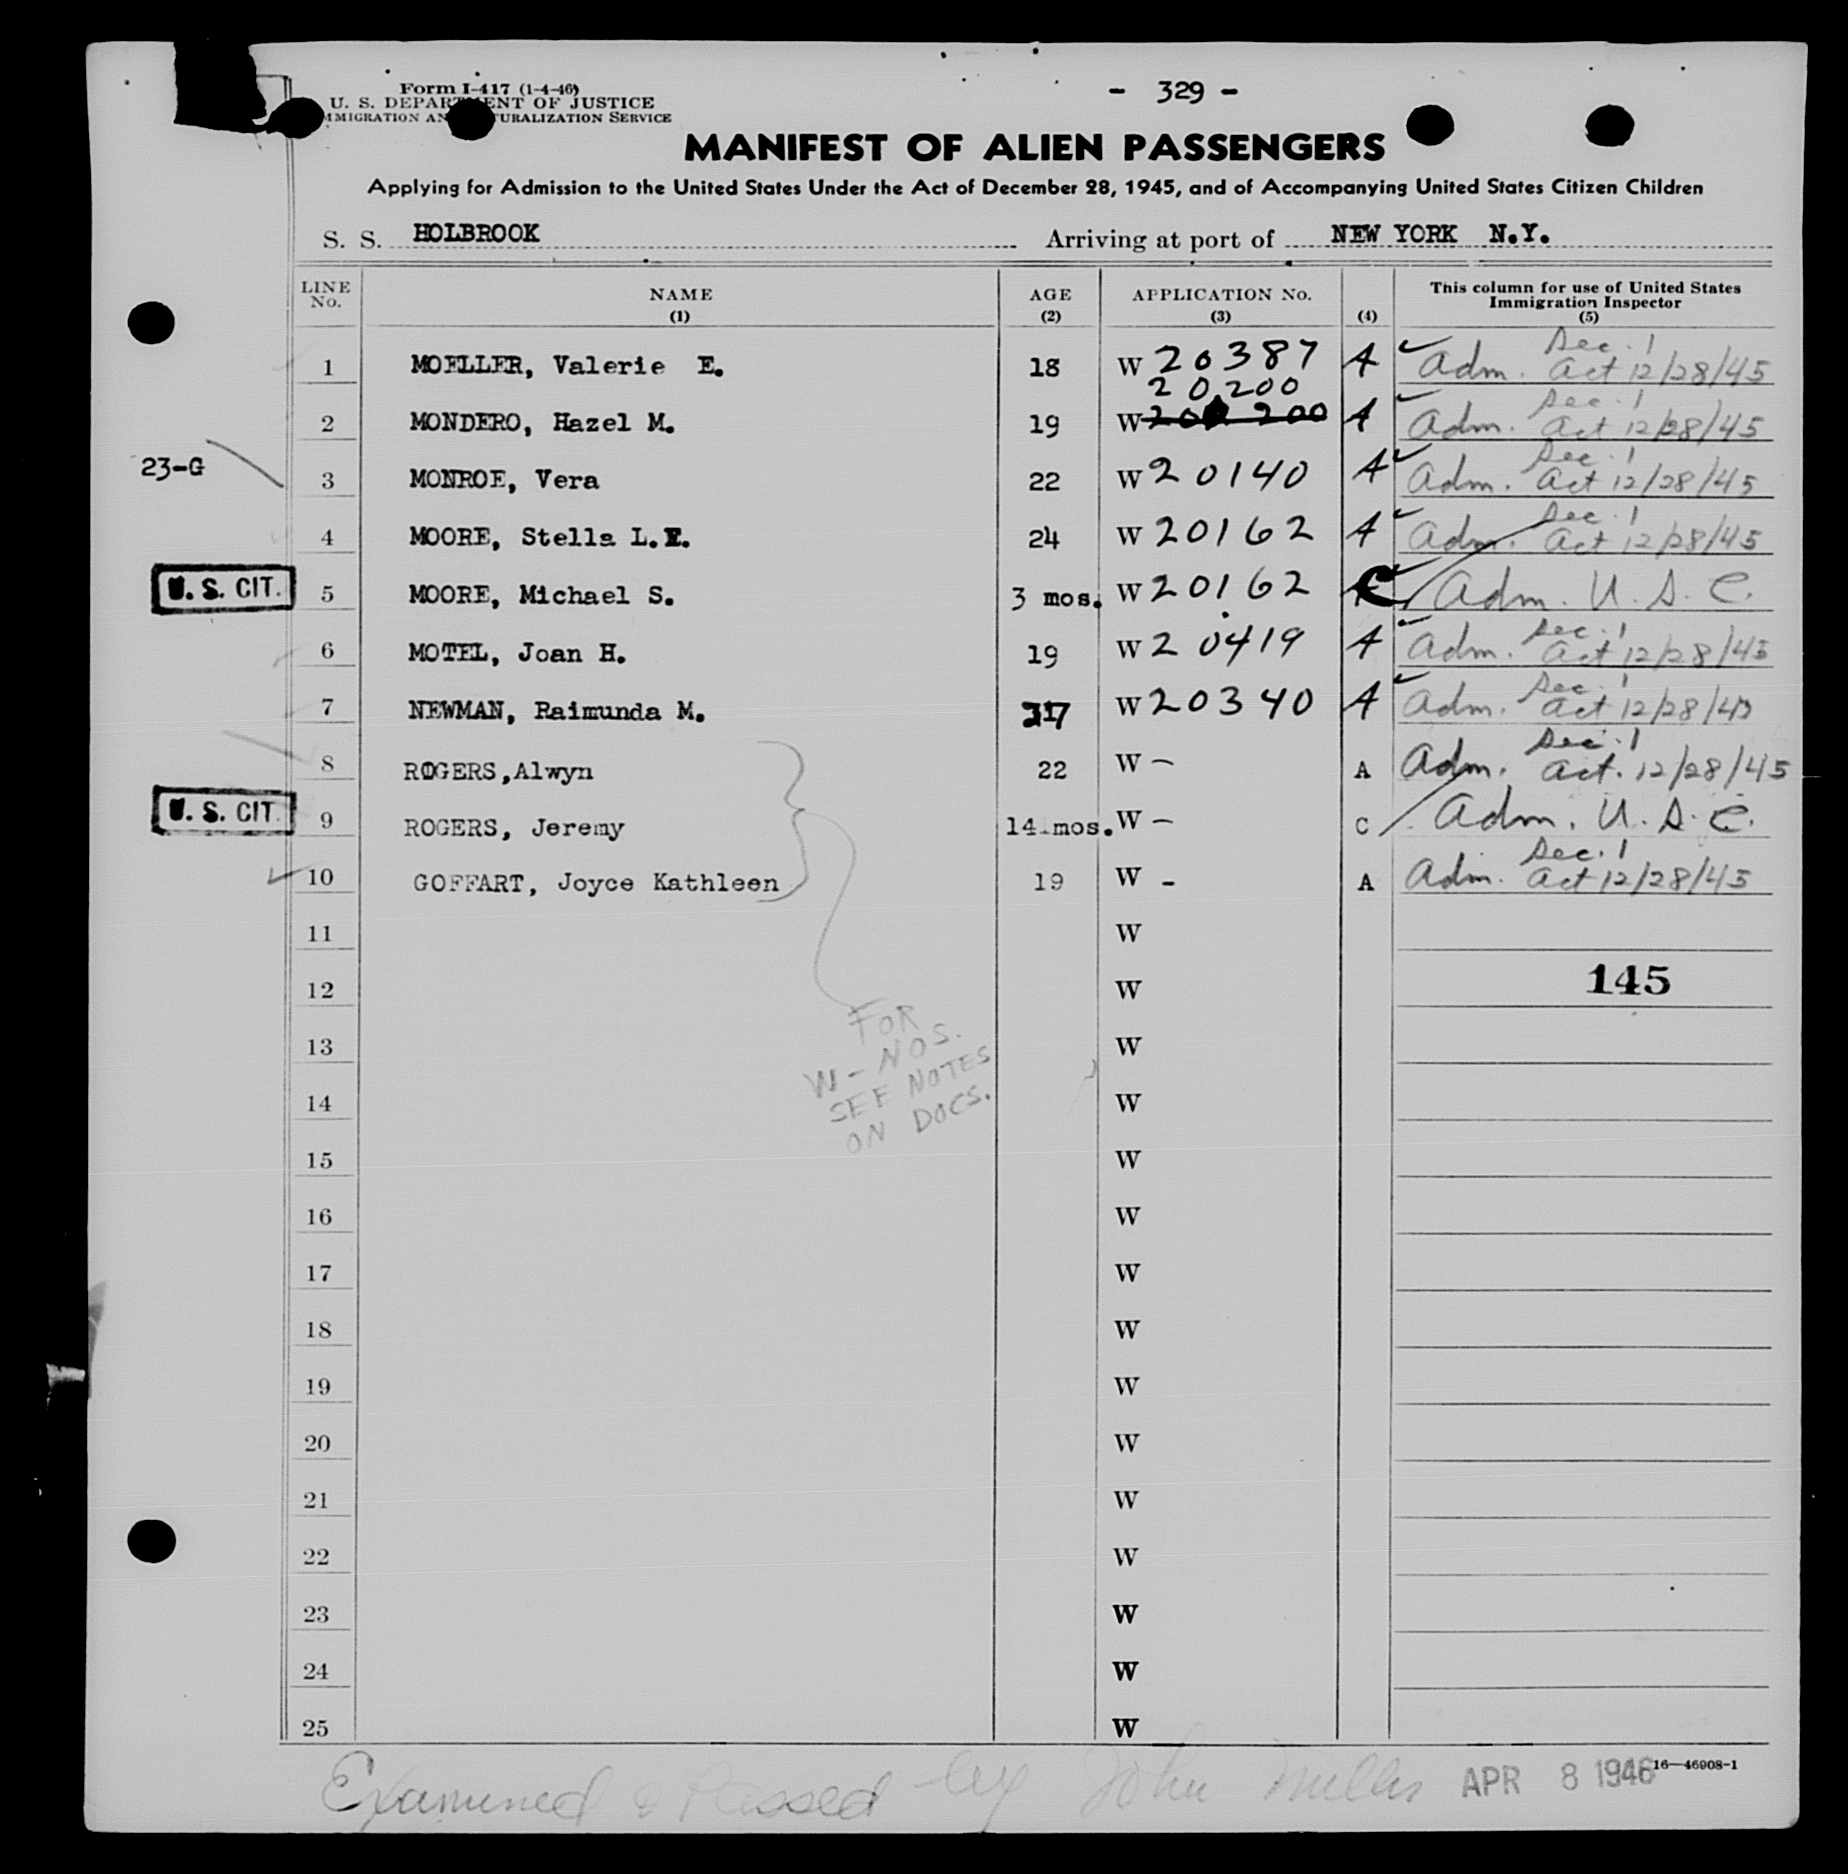 Form I-417 (1-4-46)
- 329 -
U. S. DEPARTMENT OF JUSTICE
IMMIGRATION AND NATURALIZATION SERVICE
MANIFEST OF ALIEN PASSENGERS
Applying for Admission to the United States Under the Act of December 28, 1945, and of Accompanying United States Citizen Children
S. S. HOLBROOK Arriving at port of NEW YORK N.Y.
LINE No. NAME (1) AGE (2) APPLICATION No. (3) (4) This column for use of United States Immigration Inspector (5)
1 MOELLER, Valerie E. 18 W 20387 A Adm. Sec. 1 Act 12/28/45
20200
2 MONDERO, Hazel M. 19 W 200 200 A Adm. Sec. 1 Act 12/28/45
23-G
3 MONROE, Vera 22 W 20140 A Adm. Sec. 1 Act 12/28/45
4 MOORE, Stella L.E. 24 W 20162 A Adm. Sec. 1 Act 12/28/45
U. S. CIT. 5 MOORE, Michael S. 3 mos. W 20162 C Adm. U. S. C.
6 MOTEL, Joan H. 19 W 20419 A Adm. Sec. 1 Act 12/28/45
7 NEWMAN, Raimunda M. 17 W 20340 A Adm. Sec. 1 Act 12/28/45
8 ROGERS,Alwyn 22 W - A Adm. Sec. 1 Act. 12/28/45
U. S. CIT. 9 ROGERS, Jeremy 14 mos. W - C Adm. U. S. C.
10 GOFFART, Joyce Kathleen 19 W - A Adm. Sec. 1 Act 12/28/45
11 W
12 W 145
FOR
W - NOS.
SEE NOTES
ON DOCS.
13 W
14 W
15 W
16 W
17 W
18 W
19 W
20 W
21 W
22 W
23 W
24 W
25 W
16—46908-1
Examined & Passed by John Miller APR 8 1946